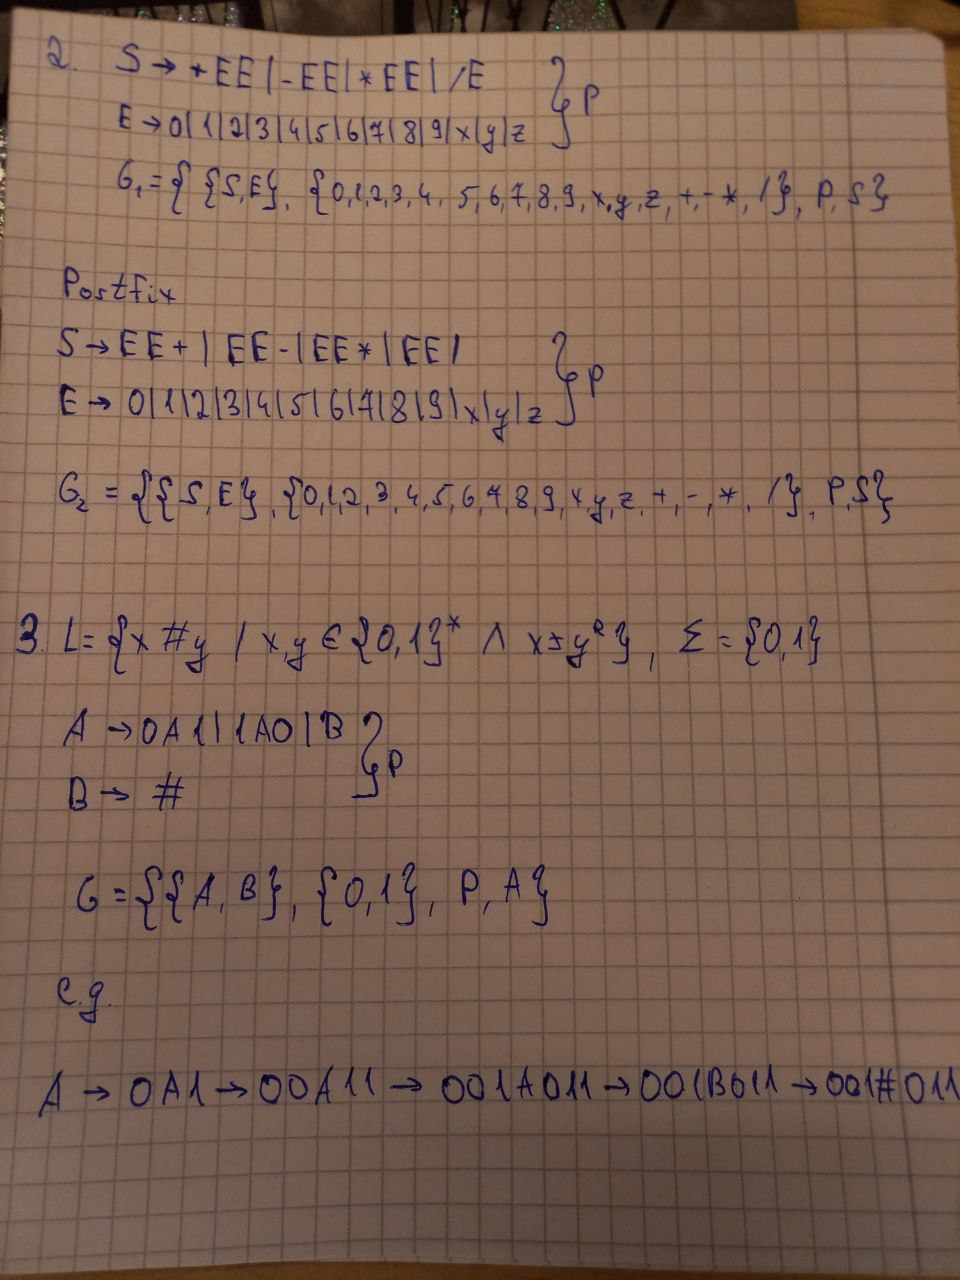 2. S → +EE | -EE | *EE | /E } P
E → 0|1|2|3|4|5|6|7|8|9|x|y|z
G₁ = { {S,E}, {0,1,2,3,4, 5,6,7,8,9,x,y,z,+,-*,/}, P,S}
Postfix
S → EE+ | EE-|EE*|EE/ } P
E → 0|1|2|3|4|5|6|7|8|9|x|y|z
G₂ = {{S,E}, {0,1,2,3,4,5,6,7,8,9,x,y,z,+,-,*,/}, P,S}
3. L = {x#y | x,y ∈ {0,1}* ∧ x=yᴿ}, Σ = {0,1}
A → 0A1|1A0|B } P
B → #
G = {{A,B}, {0,1}, P, A}
e.g.
A → 0A1 → 00A11 → 001A011 → 001B011 → 001#011